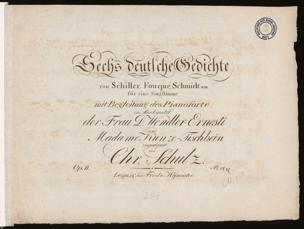 Sechs deutsche Gedichte
von Schiller, Fouque, Schmidt
für eine Singstimme
mit Begleitung des Pianoforte
in Musik gesetzt
der Frau D. Wendler Ernesti
und
Madame Kunze-Tischbein
zugeeignet
von
Chr. Schulz.
Op. II.
Leipzig, bei Friedr. Hofmeister